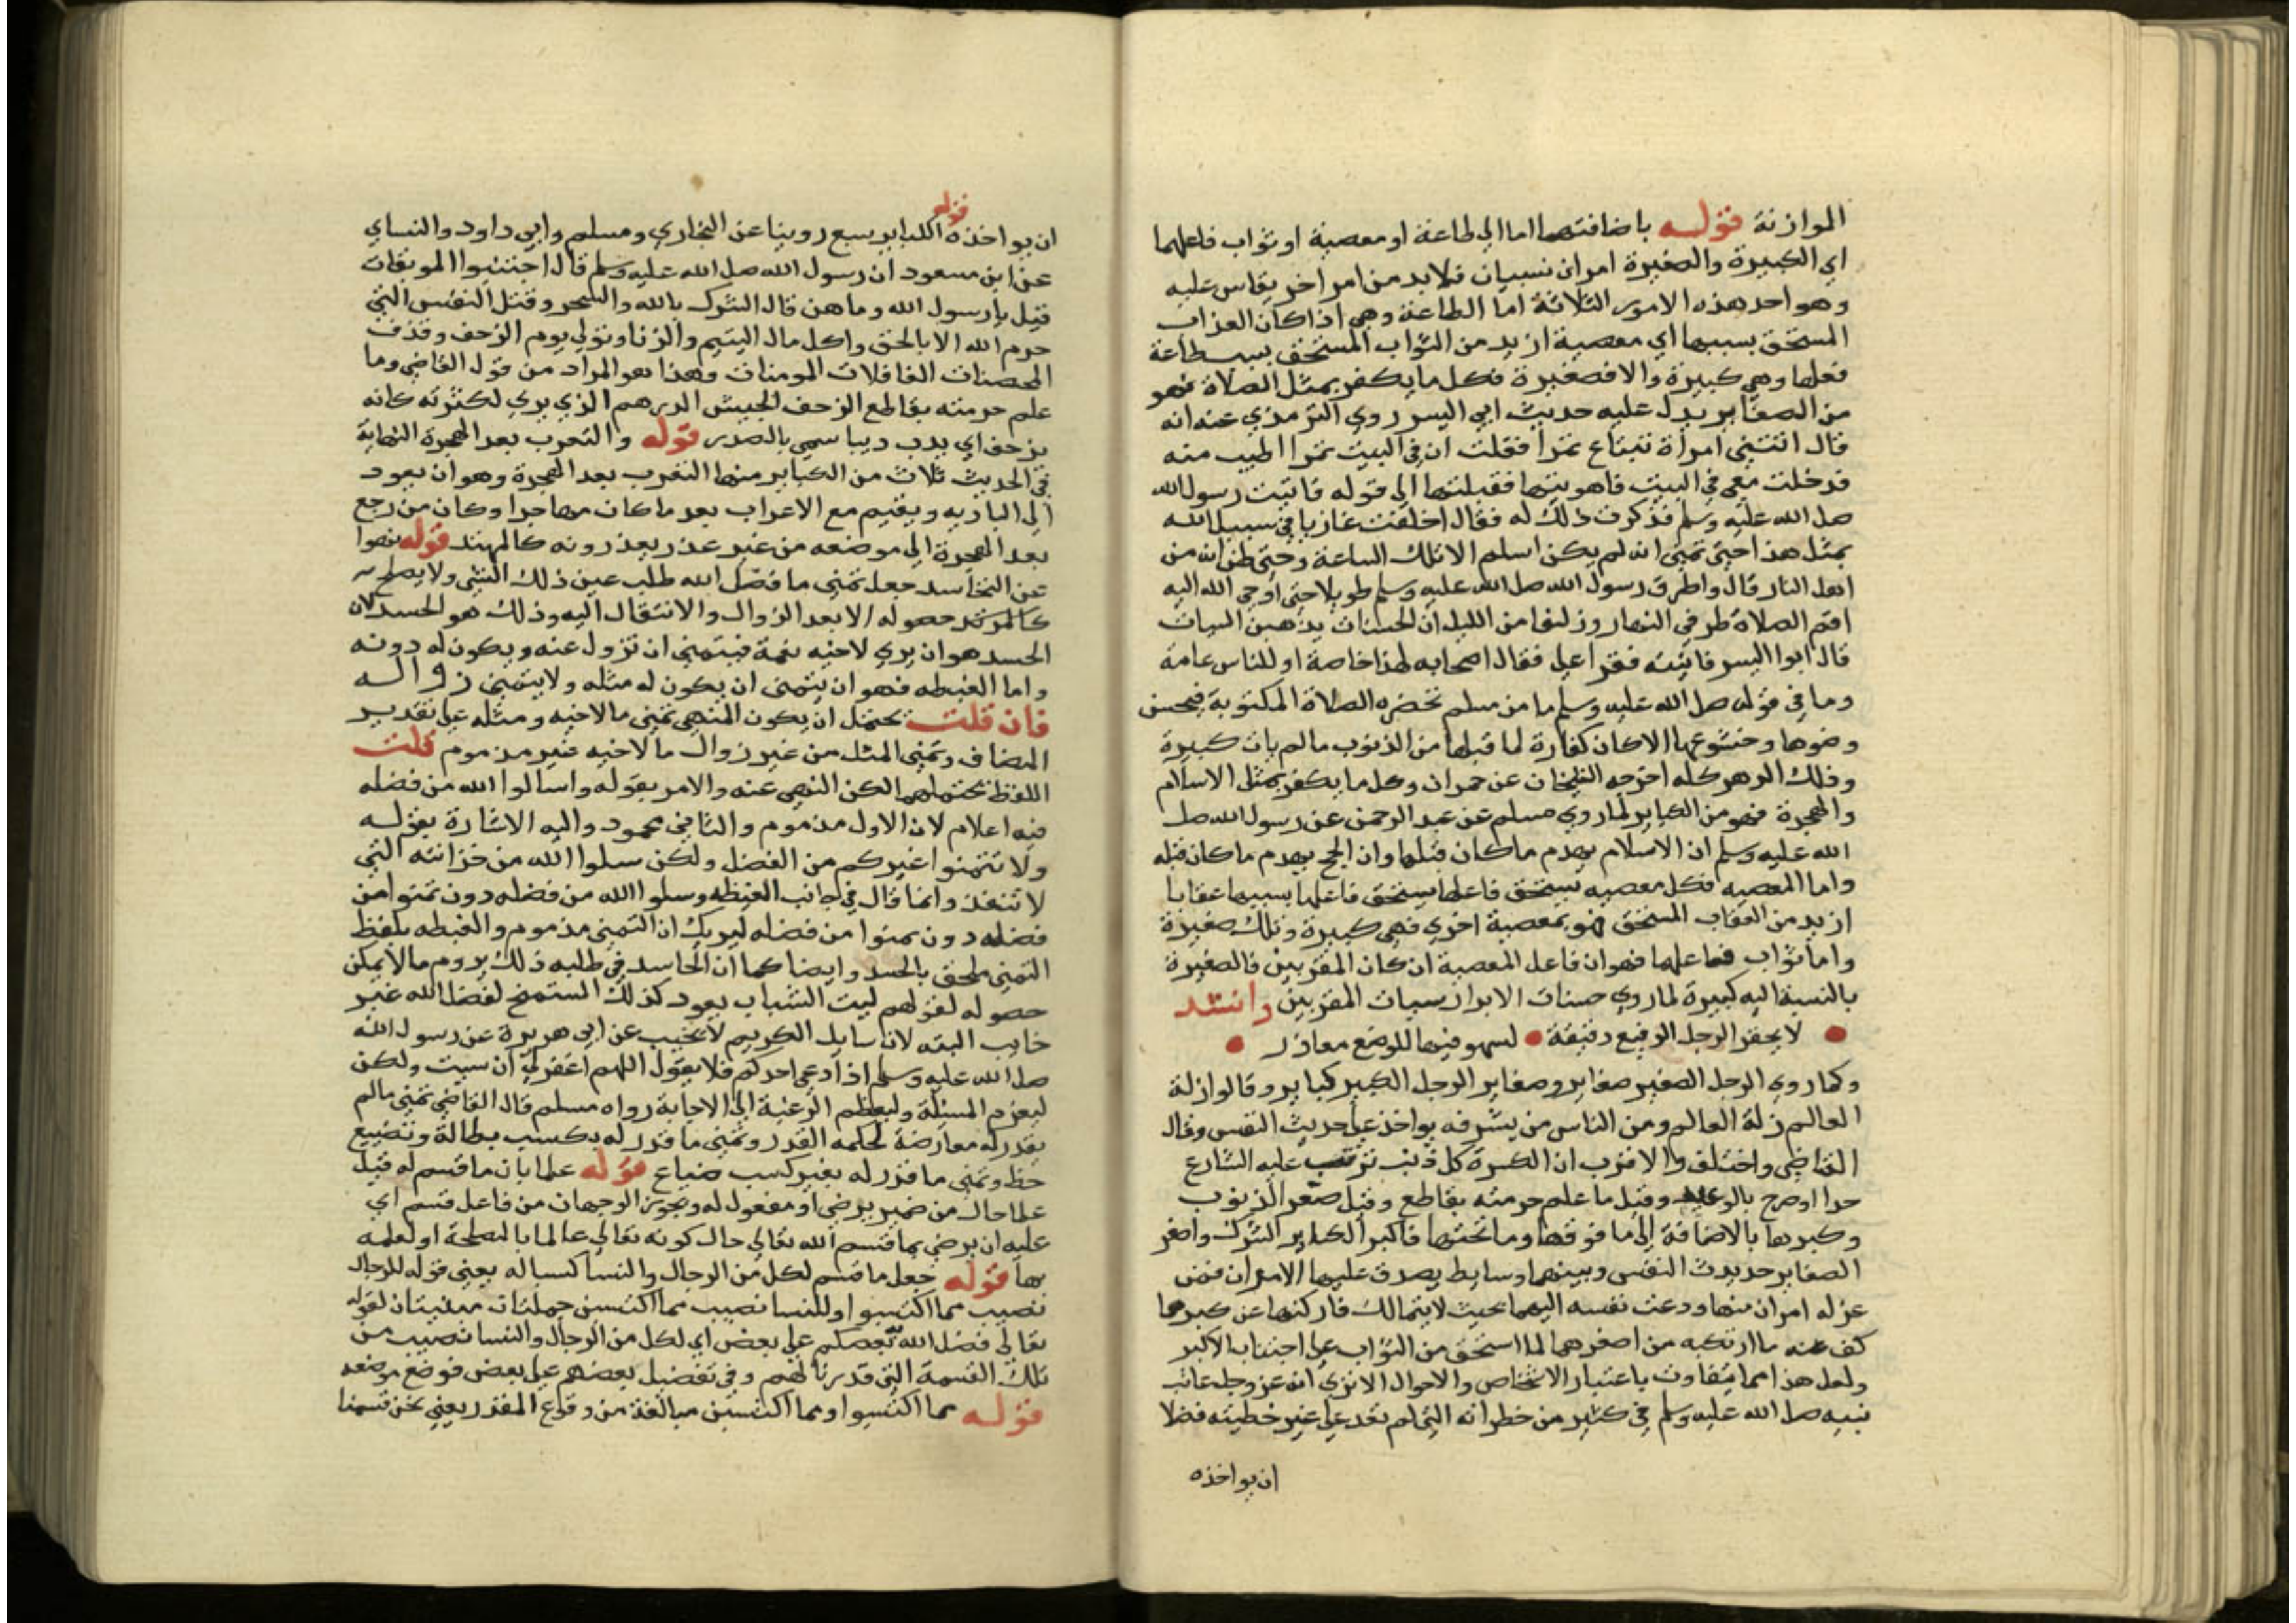 الموازنة قوله باضافتهما اما الى طاعة او معصية او ثواب فاعلهما
اي الكبيرة والصغيرة امران نسبيان فلا بد من امر اخر يقاس عليه
وهو احد هذه الامور الثلاثة اما الطاعة وهي اذا كان العذاب
المستحق بسببها اي معصية ازيد من الثواب المستحق بسبب طاعة
فعلها وهي كبيرة والا فصغيرة فكل ما يكفر بمثل الصلاة فهو
من الصغاير يدل عليه حديث ابي اليسر روي الترمذي عنه انه
قال اتتني امراة تبتاع تمرا فقلت ان في البيت تمرا اطيب منه
فدخلت معي في البيت فاهويتها فقبلتها الى قوله فاتيت رسول الله
صلى الله عليه وسلم فذكرت ذلك له فقال اخلفت غازيا في سبيل الله
بمثل هذا حتى تمنى انه لم يكن اسلم الا تلك الساعة وحتى ظن انه من
اهل النار قال واطرق رسول الله صلى الله عليه وسلم طويلا حتى اوحى الله اليه
اقم الصلاة طرفي النهار وزلفا من الليل ان الحسنات يذهبن السيات
قال ابوا اليسر فاتيته فقراعلي فقال اصحابه لهذا خاصة او للناس عامة
وما في قوله صلى الله عليه وسلم ما من مسلم تحضره الصلاة المكتوبة فيحسن
وضوها وخشوعها الا كان كفارة لما قبلها من الذنوب ما لم يات كبيرة
وذلك الدهر كله اخرجه الشيخان عن حمران وكل ما يكفر بمثل الاسلام
والهجرة فهو من الكباير لما روي مسلم عن عبد الرحمن عن رسول الله صلى
الله عليه وسلم ان الاسلام يهدم ما كان قبلها وان الحج يهدم ما كان قبله
واما المعصيه فكل معصيه يستحق فاعلها يستحق فاعلها بسببها عقابا
ازيد من العقاب المستحق بمعصية اخري فهي كبيرة وتلك صغيرة
واما ثواب فاعلهما فهو ان فاعل المعصية ان كان المقربين فالصغيرة
بالنسبة اليه كبيرة لما روي حسنات الابرار سيات المقربين وانشد
لا يحقر الرجل الرفيع دقيقة لسهو فيها للوضع معاذر
وكما روي الرجل الصغير صغاير وصغاير الرجل الكبير كباير وقالوا زلة
العالم زلة العالم ومن الناس من يشرفه يواخذ على حديث النفس وقال
القاضي واختلف والاقرب ان الكبيرة كل ذنب ترتب عليه الشارع
حدا او صرح بالوعيد وقيل ما علم حرمته بقاطع وقيل صغر الذنوب
وكبرها بالاضافة الى ما فوقها وما تحتها فاكبر الكباير الشرك واصغر
الصغاير حديث النفس وبينهما وسايط يصدق عليها الامران فمن
عن له امران منها ودعت نفسه اليهما بحيث لا يتمالك فان كفها عن كبرهما
كفر عنه ما ارتكبه من اصغرهما لما استحق من الثواب على اجتناب الاكبر
ولعل هذا مما يتفاوت باعتبار الاشخاص والاحوال الا تري انه عز وجل عاتب
نبيه صلى الله عليه وسلم في كثير من خطراته التي لم تعد على غير خطيته فضلا
ان يواخذه
ان يواخذه قوله الكباير سبع روينا عن البخاري ومسلم وابي داود والنساي
عن ابن مسعود ان رسول الله صلى الله عليه وسلم قال اجتنبوا الموبقات
قيل يا رسول الله وما هن قال الشرك بالله والسحر وقتل النفس التي
حرم الله الا بالحق واكل مال اليتيم والزنا وتولي يوم الزحف وقذف
المحصنات الغافلات المومنات وهذا هو المراد من قول القاضي وما
علم حرمته بقاطع الزحف الجيش الدهم الذي يري لكثرته كانه
يزحف اي يدب دبيبا سمي بالمصدر قوله والتعرب بعد الهجرة النهاية
في الحديث ثلاث من الكباير منها التعرب بعد الهجرة وهو ان يعود
الى الباديه ويقيم مع الاعراب بعد ما كان مهاجرا وكان من رجع
بعد الهجرة الى موضعه من غير عذر يعدونه كالمرتد قوله نهوا
عن التحاسد جعل تمني ما فضل الله طلب عين ذلك الشي ولا يصلح
حصوله الا بعد الزوال والانتقال اليه وذلك هو الحسد لان
الحسد هو ان يري لاخيه نعمة فيتمني ان تزول عنه ويكون له دونه
واما الغبطه فهو ان يتمنى ان يكون له مثله ولا يتمنى زواله
فان قلت يحتمل ان يكون المنهي تمني ما لاخيه ومثله على تقدير
المضاف وتمني المثل من غير زوال ما لاخيه غير مذموم قلت
اللفظ يحتملهما لكن النهي عنه والامر بقوله واسالوا الله من فضله
فيه اعلام لان الاول مذموم والثاني محمود واليه الاشارة بقوله
ولا تتمنوا غيركم من الفضل ولكن سلوا الله من خزائنه التي
لا تنفذ وانما قال في جانب الغبطه وسلوا الله من فضله دون تمنوا من
فضله دون تمنوا من فضله ليريك ان التمني مذموم والغبطه بلفظ
التمني ملحق بالحسد وايضا كما ان الحاسد في طلبه ذلك يروم ما لا يمكن
حصوله لقولهم ليت الشباب يعود كذلك المستمنح لفضل الله غير
خايب البته لان سايل الكريم لا يخيب عن ابي هريرة عن رسول الله
صلى الله عليه وسلم اذا دعى احدكم فلا يقول اللهم اغفر لي ان شيت ولكن
ليعزم المسئلة وليعظم الرغبة الى الاجابة رواه مسلم قال القاضي تمني ما لم
يقدر له معارضة لحكمه القدر وتمني ما قدر له بكسب بطالة وتضييع
حظ وتمني ما قدر له بغير كسب ضياع قوله علما بان ما قسم له قيل
علما حال من ضمير يرضي او مفعول له ويجوز الوجهان من فاعل قسم اي
عليه ان يرضي بما قسم الله تعالى حال كونه تعالى عالما بالمصلحة او لعلمه
بها قوله جعل ما قسم لكل من الرجال والنسا كسبا له يعني قوله للرجال
نصيب مما اكتسبوا وللنسا نصيب مما اكتسبن جملتان مبنيتان لقوله
تعالى فضل الله بعضكم على بعض اي لكل من الرجال والنسا نصيب من
تلك القسمة التي قدرنا لهم وفي تفضيل بعضهم على بعض فوضع موضعه
قوله مما اكتسبوا ومما اكتسبن مبالغة من وقوع المقدر يعني نحن قسمنا